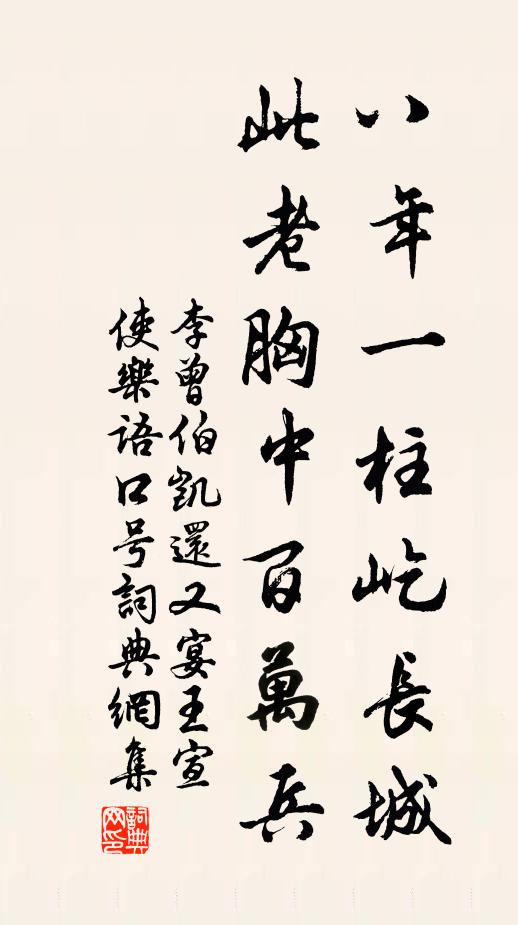 八年一柱屹長城
此老胸中百萬兵
李曾伯凱還又宴王宣
使樂語口号詞典網集
詞典網印